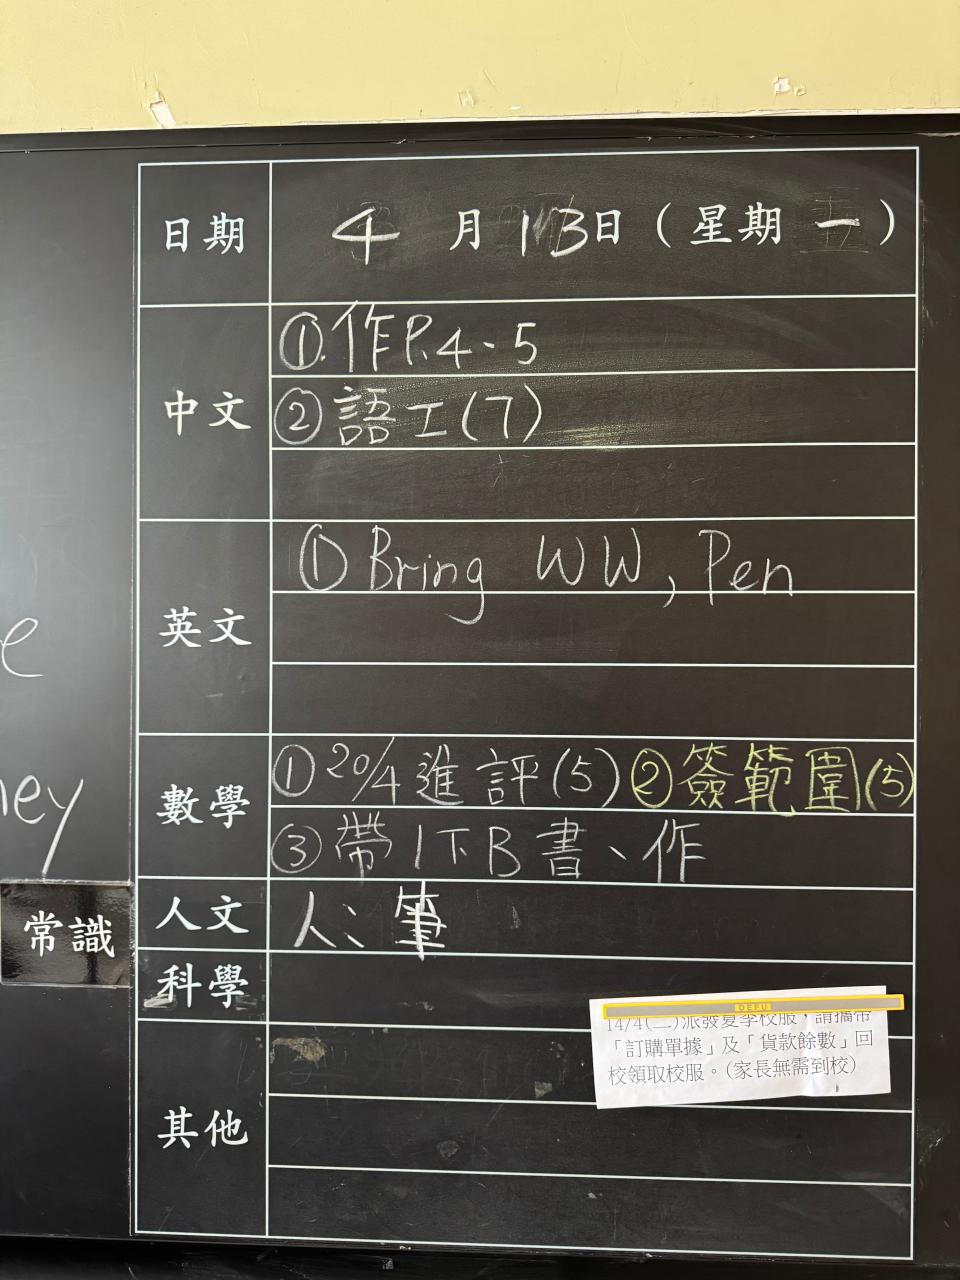 日期 4月13日（星期一）
中文
①.作P.4、5
②語工(7)
英文
①Bring WW, Pen
數學
①20/4進評(5) ②簽範圍(5)
③帶1下B書、作
人文 人：筆
常識
科學
其他
DEFU
14/4(二)派發夏季校服，請攜帶
「訂購單據」及「貨款餘數」回
校領取校服。(家長無需到校)
e
ney